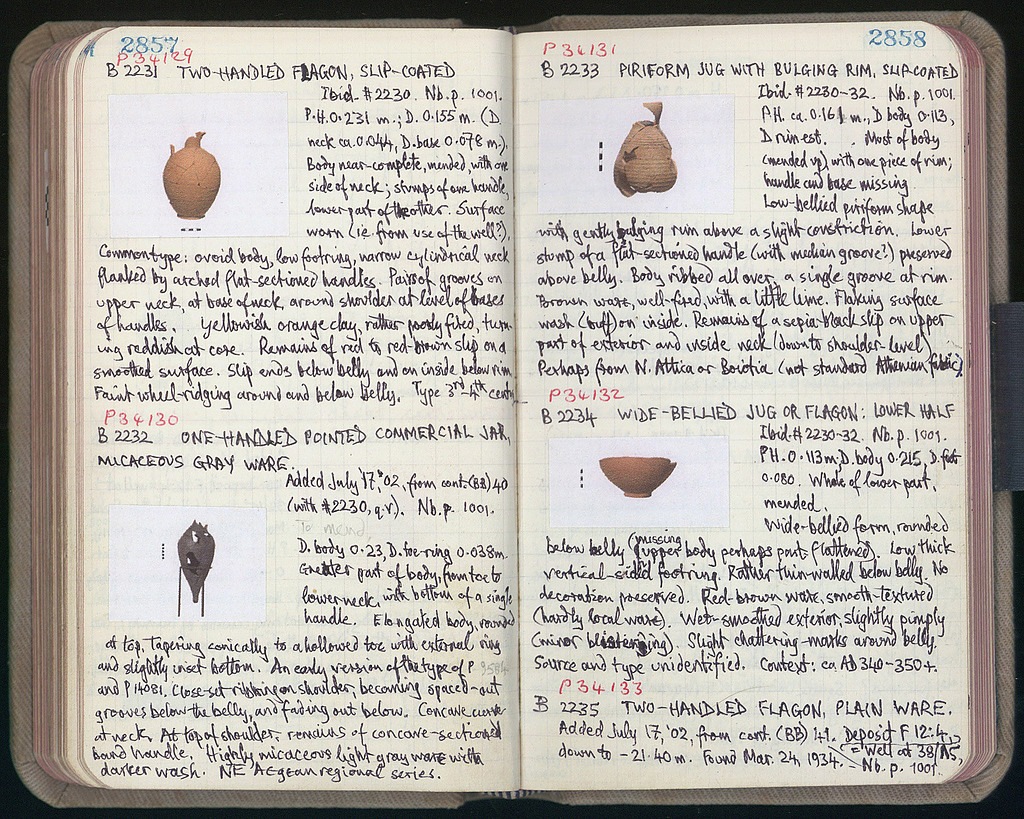 2857
P 34129
B 2231 TWO-HANDLED FLAGON, SLIP-COATED
Ibid. #2230. Nb. p. 1001.
P.H. 0.231 m.; D. 0.155 m. (D.
neck ca. 0.044, D. base 0.078 m.).
Body near-complete, mended, with one
side of neck; stumps of one handle,
lower part of the other. Surface
worn (ie. from use of the well?).
Common type: ovoid body, low footring, narrow cylindrical neck
flanked by arched flat-sectioned handles. Pairs of grooves on
upper neck, at base of neck, around shoulder at level of bases
of handles. Yellowish orange clay, rather poorly fired, turn-
ing reddish at core. Remains of red to red-brown slip on a
smoothed surface. Slip ends below belly and on inside below rim
Faint wheel-ridging around and below belly. Type 3rd-4th cent.
P 34130
B 2232 ONE-HANDLED POINTED COMMERCIAL JAR,
MICACEOUS GRAY WARE.
Added July 17, '02, from cont. (BB) 40
(with #2230, q.v.). Nb. p. 1001.
To mend.
D. body 0.23, D. foe-ring 0.038m.
Greater part of body, from toe to
lower neck, with bottom of a single
handle. Elongated body, rounded
at top, Tapering conically to a hollowed toe with external ring
and slightly inset bottom. An early version of the type of P 9584
and P 14081. Close-set ribbing on shoulder, becoming spaced-out
grooves below the belly, and fading out below. Concave curve
at neck. At top of shoulder, remains of concave-sectioned
band handle. Highly micaceous light gray ware with
darker wash. NE Aegean regional series.
2858
P 34131
B 2233 PIRIFORM JUG WITH BULGING RIM, SLIP-COATED
Ibid. #2230-32. Nb. p. 1001.
P.H. ca. 0.161 m., D body 0.113,
D rim est. . Most of body
(mended up), with one piece of rim;
handle and base missing.
Low-bellied piriform shape
with gently bulging rim above a slight constriction. Lower
stump of a flat-sectioned handle (with median groove?) preserved
above belly. Body ribbed all over, a single groove at rim.
Brown ware, well-fired, with a little lime. Flaking surface
wash (buff) on inside. Remains of a sepia-black slip on upper
part of exterior and inside neck (down to shoulder-level)
Perhaps from N. Attica or Boiotia (not standard Athenian fabric).
P 34132
B 2234 WIDE-BELLIED JUG OR FLAGON: LOWER HALF
Ibid. #2230-32. Nb. p. 1001.
P.H. 0.113m; D. body 0.215, D. foot
0.080. Whole of lower part,
mended.
Wide-bellied form, rounded
below belly (missing upper body perhaps part-flattened). Low thick
vertical-sided footring. Rather thin-walled below belly. No
decoration preserved. Red-brown ware, smooth-textured
(hardly local ware). Wet-smoothed exterior, slightly pimply
(minor blistering). Slight chattering-marks around belly.
Source and type unidentified. Context: ca. AD 340-350+.
P 34133
B 2235 TWO-HANDLED FLAGON, PLAIN WARE.
Added July 17, '02, from cont. (BB) 41. Deposit F 12:4,
down to -21.40 m. Found Mar. 24, 1934. = Well at 38/ΛΣ,
- Nb. p. 1001.